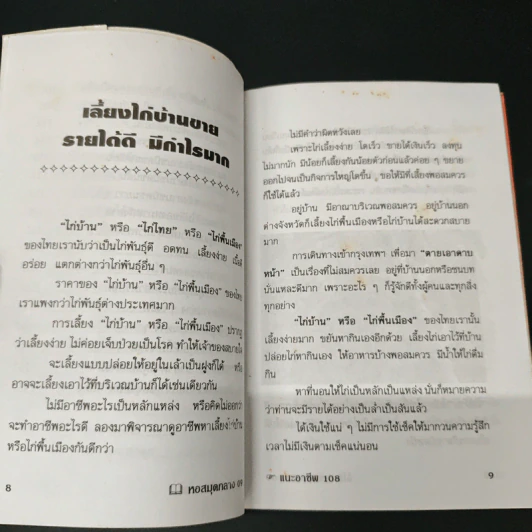 เลี้ยงไก่บ้านขาย
รายได้ดี มีกำไรมาก
"ไก่บ้าน" หรือ "ไก่ไทย" หรือ "ไก่พื้นเมือง"
ของไทยเรานับว่าเป็นไก่พันธุ์ดี อดทน เลี้ยงง่าย เนื้อ
อร่อย แตกต่างกว่าไก่พันธุ์อื่น ๆ
ราคาของ "ไก่บ้าน" หรือ "ไก่พื้นเมือง" ของไทย
เราแพงกว่าไก่พันธุ์ต่างประเทศมาก
การเลี้ยง "ไก่บ้าน" หรือ "ไก่พื้นเมือง" ปรากฏ
ว่าเลี้ยงง่าย ไม่ค่อยเจ็บป่วยเป็นโรค ทำให้เจ้าของสบายใจ
จะเลี้ยงแบบปล่อยให้อยู่ในเล้าเป็นฝูงก็ได้ หรือ
อาจจะเลี้ยงเอาไว้ที่บริเวณบ้านก็ได้เช่นเดียวกัน
ไม่มีอาชีพอะไรเป็นหลักแหล่ง หรือคิดไม่ออกว่า
จะทำอาชีพอะไรดี ลองมาพิจารณาดูอาชีพหาเลี้ยงไก่บ้าน
หรือไก่พื้นเมืองกันดีกว่า
8 หอสมุดกลาง 09
ไม่มีคำว่าผิดหวังเลย
เพราะไก่เลี้ยงง่าย โตเร็ว ขายได้เงินเร็ว ลงทุน
ไม่มากนัก มีน้อยก็เลี้ยงกันน้อยตัวก่อนแล้วค่อย ๆ ขยาย
ออกไปจนเป็นกิจการใหญ่โตขึ้น ขอให้มีที่เลี้ยงพอสมควร
ก็ใช้ได้แล้ว
อยู่บ้าน มีอาณาบริเวณพอสมควร อยู่บ้านนอก
ต่างจังหวัดก็เลี้ยงไก่พื้นเมืองหรือไก่บ้านได้สะดวกสบาย
มาก
การเดินทางเข้ากรุงเทพฯ เพื่อมา "ตายเอาดาบ
หน้า" เป็นเรื่องที่ไม่สมควรเลย อยู่ที่บ้านนอกหรือชนบท
นั่นแหละดีมาก เพราะอะไร ๆ ก็รู้จักดีทั้งผู้คนและทุกสิ่ง
ทุกอย่าง
"ไก่บ้าน" หรือ "ไก่พื้นเมือง" ของไทยเรานั้น
เลี้ยงง่ายมาก ขยันหากินเองอีกด้วย เลี้ยงไก่เอาไว้ที่บ้าน
ปล่อยไก่หากินเอง ให้อาหารบ้างพอสมควร มีน้ำให้ไก่ดื่ม
กิน
หาที่นอนให้ไก่เป็นหลักเป็นแหล่ง นั่นก็หมายความ
ว่าท่านจะมีรายได้อย่างเป็นล่ำเป็นสันแล้ว
ได้เงินใช้แน่ ๆ ไม่มีการใช้เช็คให้มากวนความรู้สึก
เวลาไม่มีเงินตามเช็คแน่นอน
แนะอาชีพ 108 9